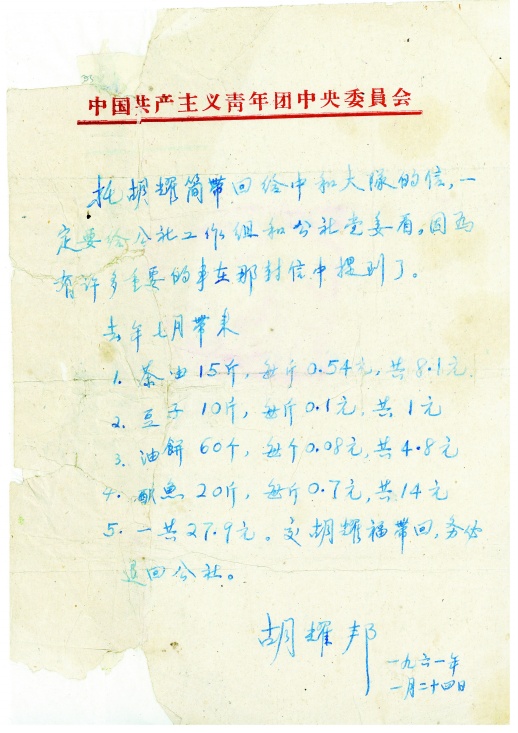 中国共产主义青年团中央委員会
托胡耀简带回给中和大队的信，一
定要给公社工作组和公社党委看。因为
有许多重要的事在那封信中提到了。
去年七月带来
1. 茶油15斤，每斤0.54元，共8.1元
2. 豆子10斤，每斤0.1元，共1元
3. 油餅60个，每个0.08元，共4.8元
4. 魚20斤，每斤0.7元，共14元
5. 一共27.9元。交胡耀福带回，务必
退回公社。
胡耀邦
一九六一年
一月二十四日